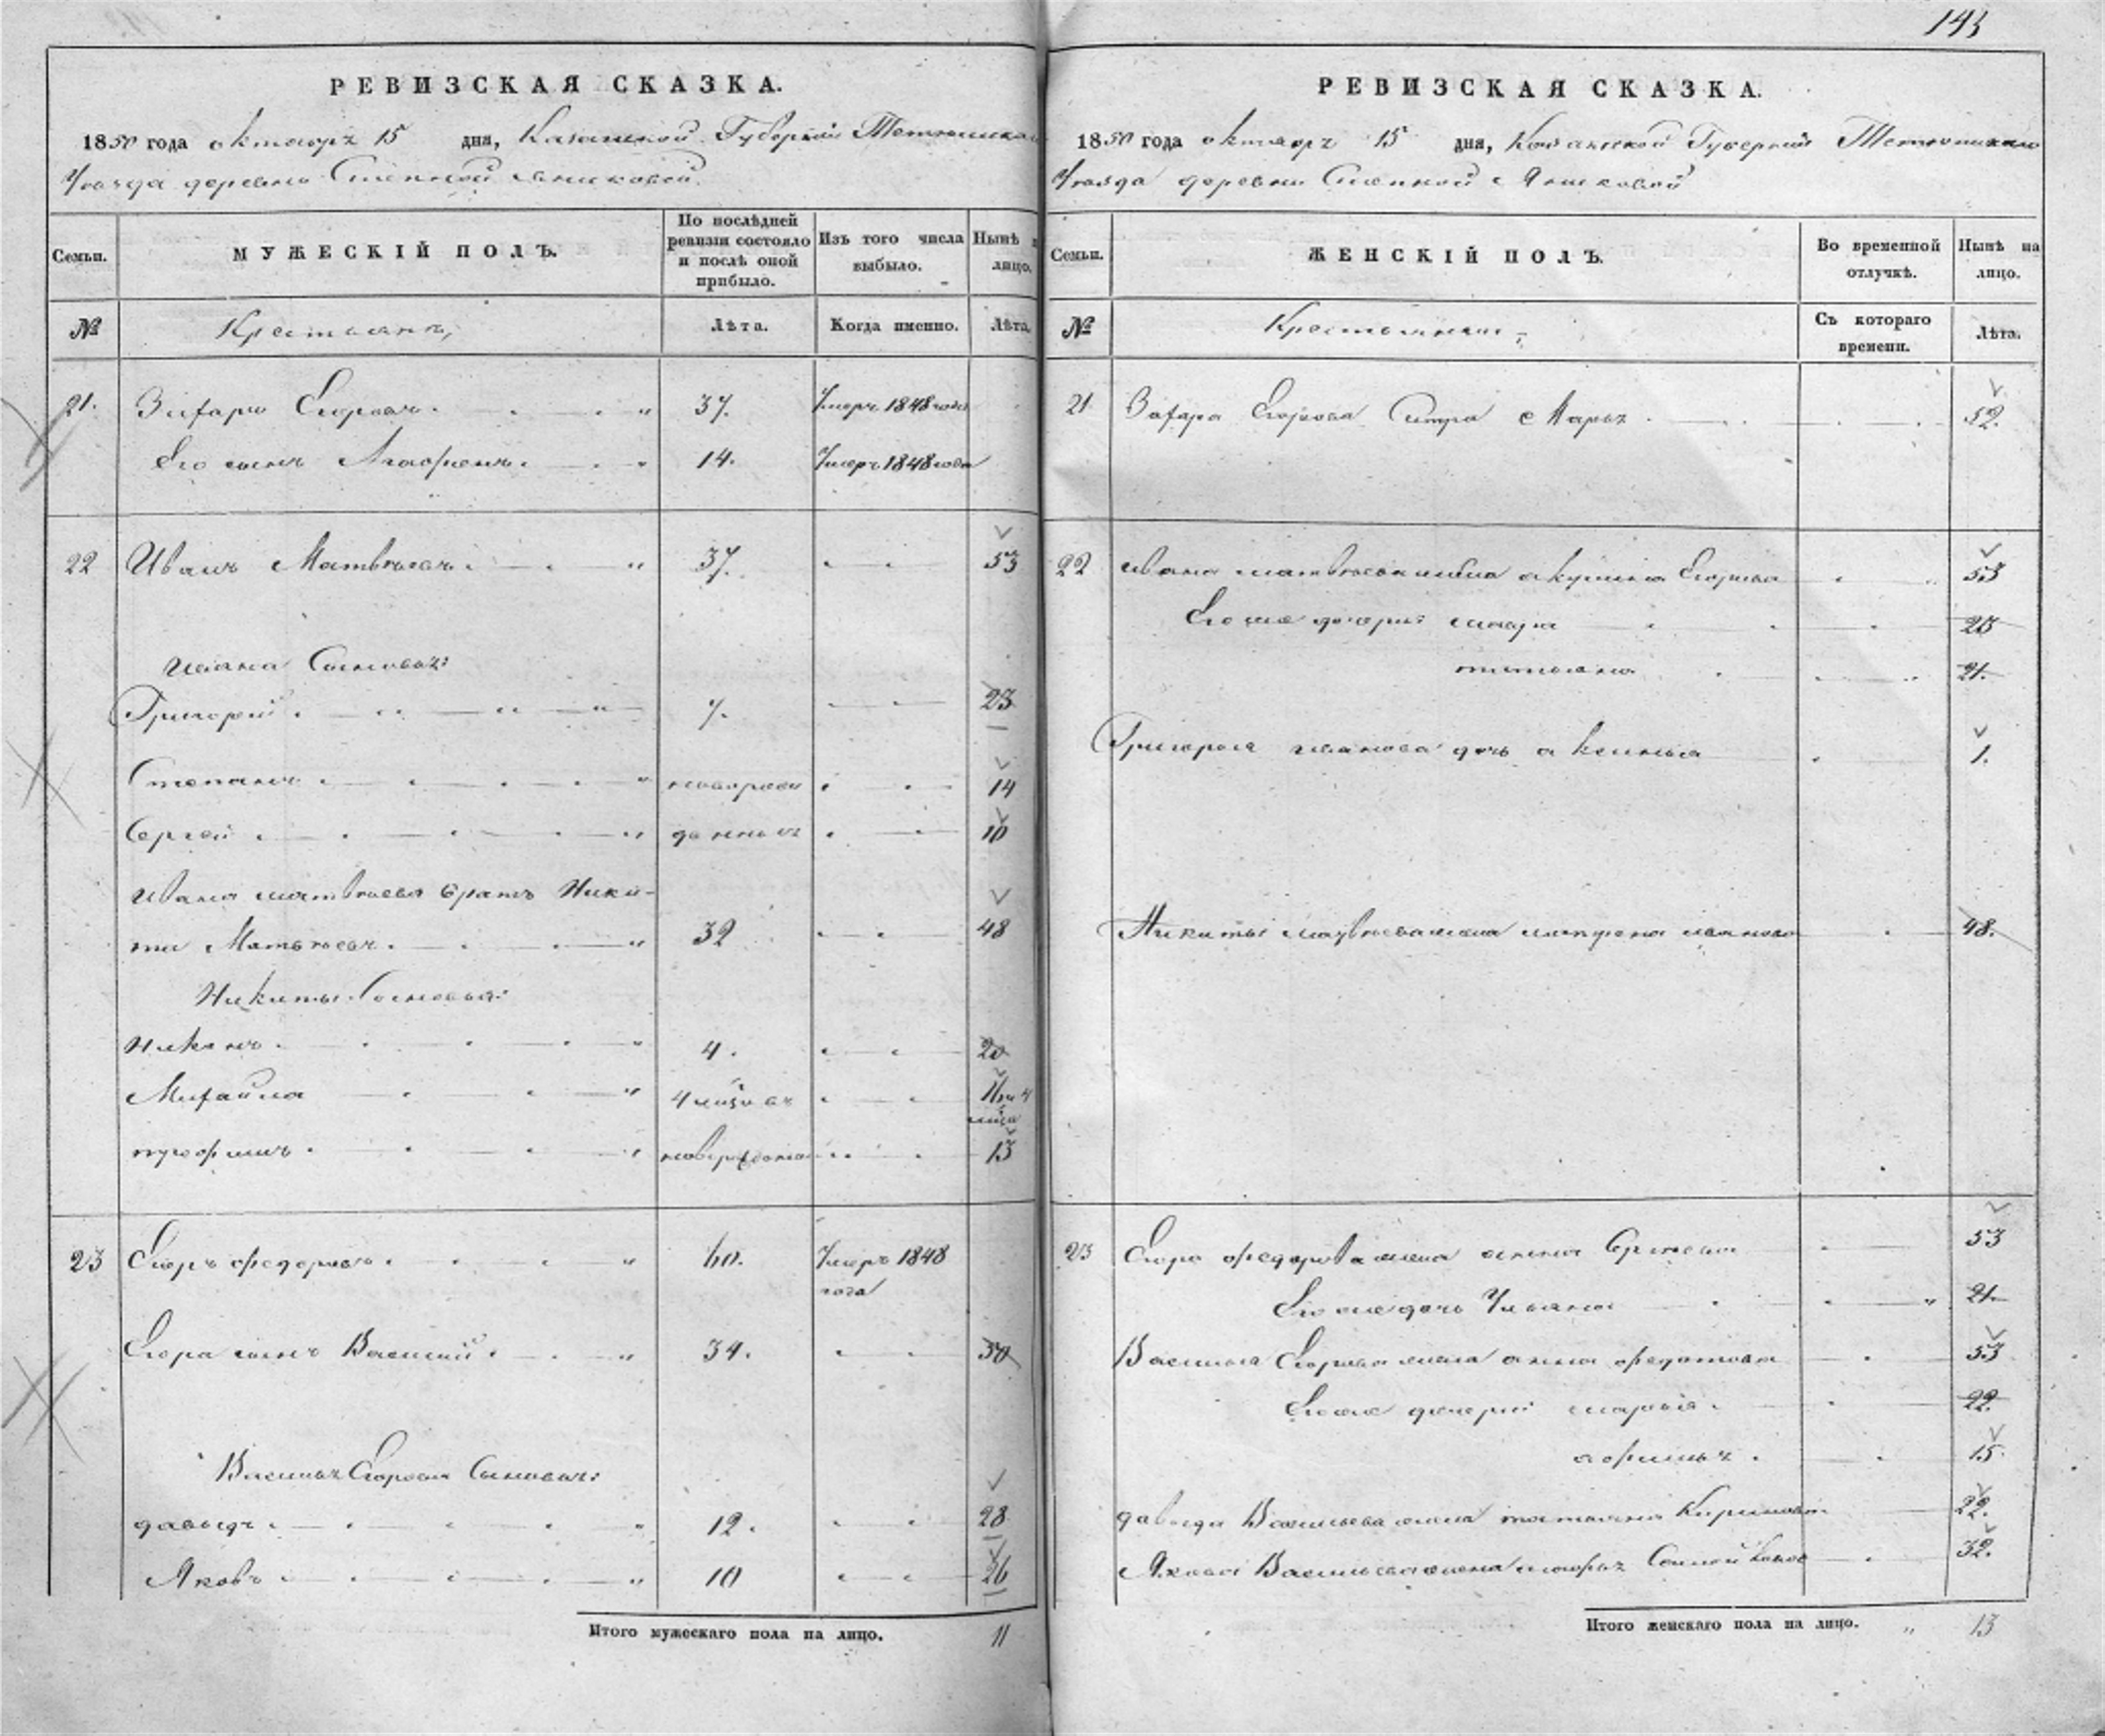 143
РЕВИЗСКАЯ СКАЗКА.
1850 года октября 15 дня, Казанской Губернии Тетюшскаго
Уезда деревни Степной Яниковой
Семьи.
МУЖЕСКІЙ ПОЛЪ.
По послѣдней ревизіи состояло и послѣ оной прибыло.
Изъ того числа выбыло.
Нынѣ лицо.
№
Крестьяне,
Лѣта.
Когда именно.
Лѣта.
21. Егоровъ. 37. Умеръ 1848 года
Его сынъ 14. Умеръ 1848 года
22 Иванъ Матвѣевъ. 37. 53
Ивана Сыновья:
Григорій. 7. 23
Степанъ. новорож 14
Сергей. денные 10
Ивана Матвѣева братъ Ники-
та Матвѣевъ. 32 48
Никиты Сыновья:
Никонъ. 4. 20
Михайла 4 11
13
23 Егоръ Федоровъ. 60. Умеръ 1848
года
Егора сынъ Василий. 34. 50
Василья Егорова Сыновья:
давыдъ. 12. 28
Яковъ. 10 26
Итого мужескаго пола на лицо. 11
РЕВИЗСКАЯ СКАЗКА.
1850 года октября 15 дня, Казанской Губерніи Тетюшскаго
Уезда деревни Степной Яниковой
Семьи.
ЖЕНСКІЙ ПОЛЪ.
Во временной отлучкѣ.
Нынѣ на лицо.
№
Крестьянки,
Съ котораго времени.
Лѣта.
21 Егорова Марья 52.
22 Ивана Матвѣева жена акулина Егорова 53
Его же дочери: 23
татьяна 21.
Григорья Иванова дочь аксинья 1.
Никиты жена Иванова 48.
23 Егора федорова жена анна 53
Его же дочь Ульяна 21.
Василья Егорова жена анна федотова 53
Его же дочери марья. 22.
15.
давыда Васильева жена татьяна 22.
Якова Васильева жена 32.
Итого женскаго пола на лицо. 13